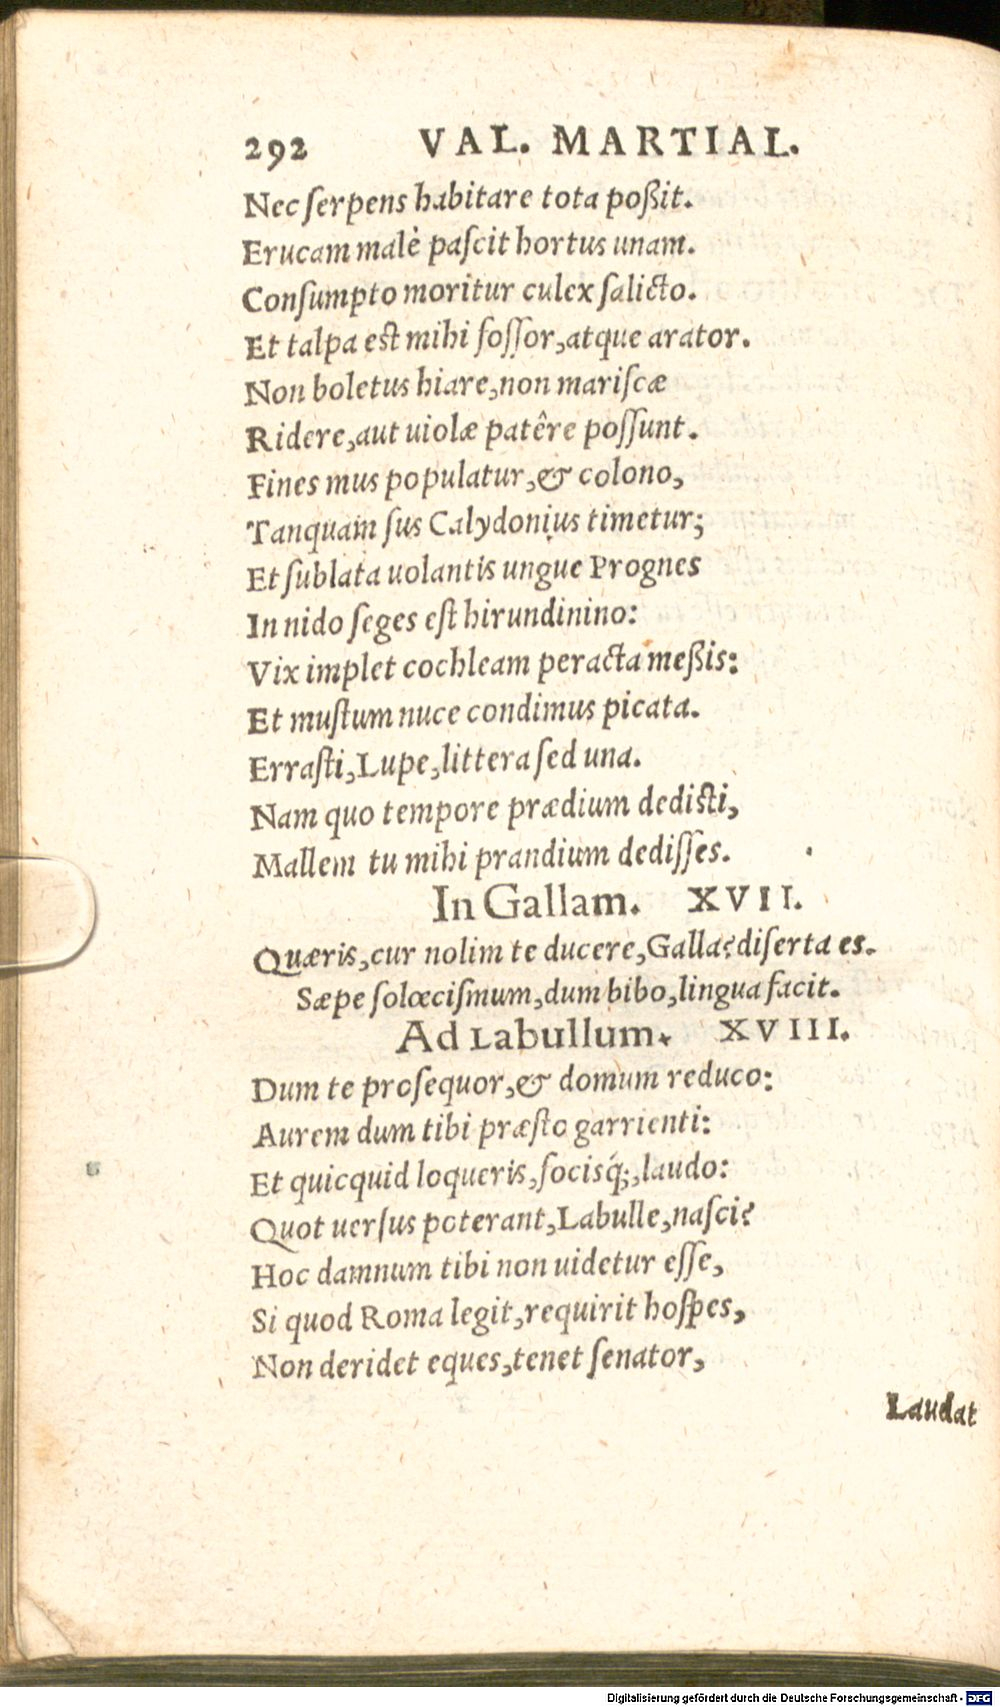 292 VAL. MARTIAL.
Nec ſerpens habitare tota poßit.
Erucam malè paſcit hortus unam.
Conſumpto moritur culex ſalicto.
Et talpa est mihi foſſor, atque arator.
Non boletus hiare, non mariſcæ
Ridere, aut uiolæ patêre poſſunt.
Fines mus populatur, & colono,
Tanquam ſus Calydonius timetur;
Et ſublata uolantis ungue Prognes
In nido ſeges eſt hirundinino:
Vix implet cochleam peracta meßis:
Et muſtum nuce condimus picata.
Erraſti, Lupe, littera ſed una.
Nam quo tempore prædium dedisti,
Mallem tu mihi prandium dediſſes.
In Gallam. XVII.
Quæris, cur nolim te ducere, Galla? diſerta es.
Sæpe ſolœciſmum, dum bibo, lingua facit.
Ad Labullum. XVIII.
Dum te proſequor, & domum reduco:
Aurem dum tibi præſto garrienti:
Et quicquid loqueris, ſocisq́;, laudo:
Quot uerſus poterant, Labulle, naſci?
Hoc damnum tibi non uidetur eſſe,
Si quod Roma legit, requirit hoſpes,
Non deridet eques, tenet ſenator,
Laudat
Digitalisierung gefördert durch die Deutsche Forschungsgemeinschaft - DFG